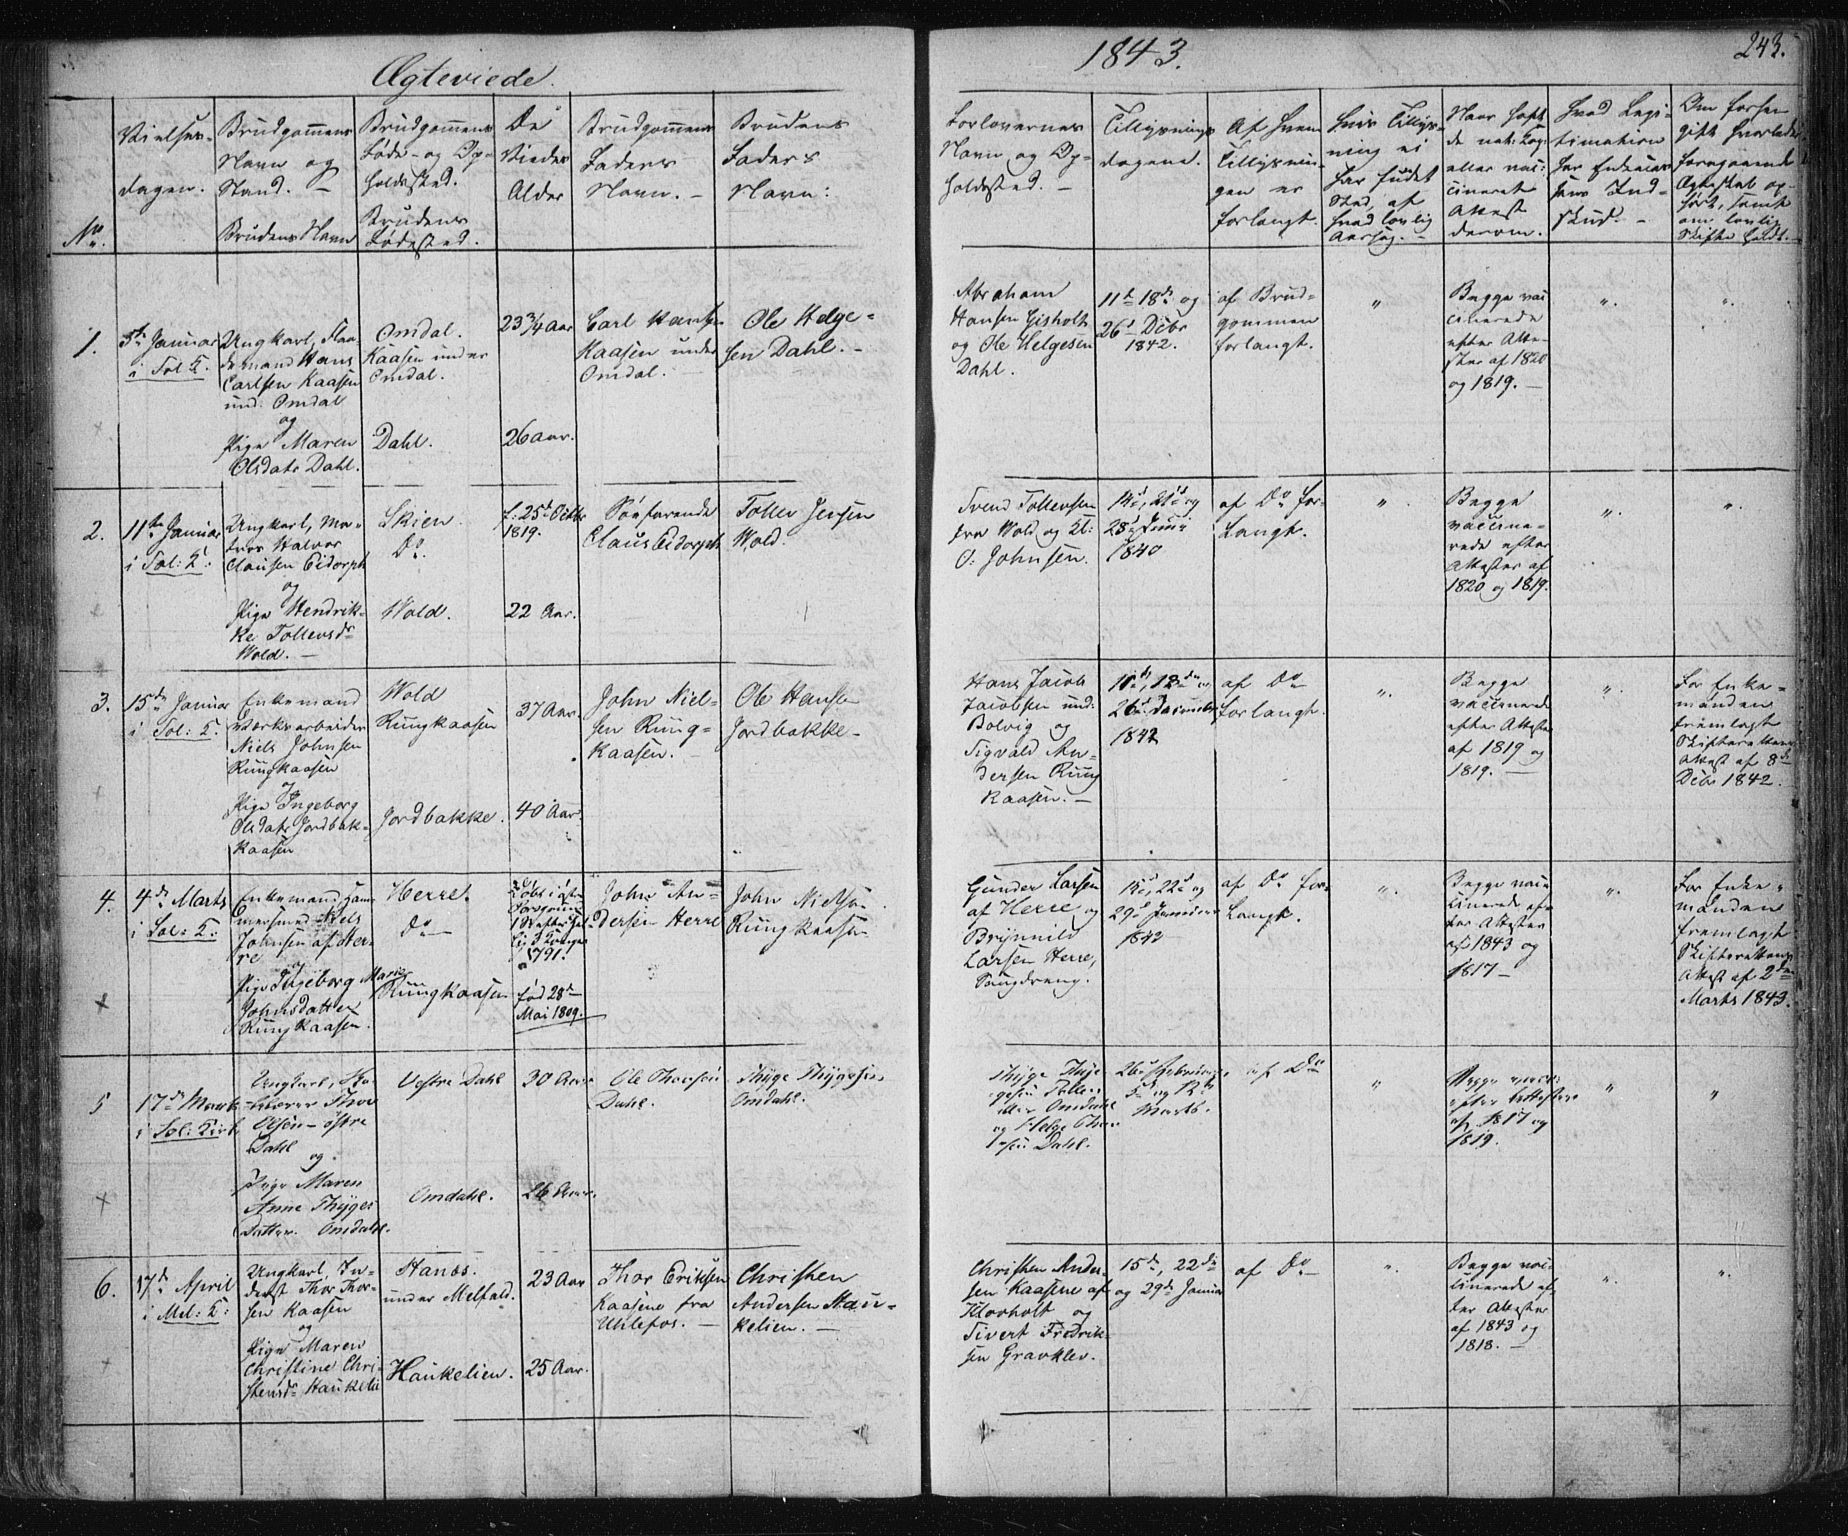 Ægteviede.
1843.
243.
No.
Vielses-
dagen.
Brudgommens
Navn og
Stand. –
Brudens Navn
Brudgommens
Føde- og Op-
holdssted.
Brudens
Fødested.
De
Viedes
Alder
Brudgommens
Faders
Navn. –
Brudens
Faders
Navn:
Forlovernes
Navn og Op-
holdssted. –
Tillysnings
dagene.
Af hvem
Tillysnin-
gen er
forlangt.
Hvis Tillys-
ning ei
har fundet
Sted, af
hvad lovlig
Aarsag. –
Naar havt
de nat: Kop.
eller vac-
cineret
Attest
derom.
Hvad Legi-
timation
har Enkens
Skud. –
Om forhen
gift hvorledes
foregaaende
Ægteskab op-
hørt, samt
om lovlig
Skifte holdt. –
1.
5te Januar
i Sol: K.
Ungkarl,
Hans
Carlsen Kaasen
und: Omdal
og
Pige Maren
Olsdatr Dahl.
Omdal.
Kaasen under
Omdal.
Dahl.
23 3/4 Aar
26 Aar.
Carl Hansen
Kaasen under
Omdal. –
Ole Helge-
sen Dahl. –
Abraham
Hansen Gisholt
og Ole Helgesen
Dahl.
11te 18de og
26de Debr
1842.
af Brud-
gommen
forlangt.
"
Begge vac-
cinerede
efter Atte-
ster af 1820
og 1819. –
"
"
2.
11te Januar
i Sol: K:
Ungkarl, Ma-
tros Halvor
Clausen Eidorph
og
Pige Hendrik-
ke Tollevsdr
Wold. –
Skien.
Do
Wold.
f: 25de Octbr
1819.
22 Aar.
Søefarende
Claus Eidorph
Tollev Jensen
Wold.
Svend Tollevsen
fra Wold og Cl:
O: Johnsen.
14de, 21de og
28de Juni
1840
af Do for-
langt.
"
Begge
vaccine-
rede efter
Attester af
1820 og 1819.
"
"
3.
15de Januar
i Sol: K.
Enkemand
Værksarbeider
Niels Johnsen
Rüngkaasen
og
Pige Ingeborg
Olsdatr Jordbak-
kaasen
Wold
Rüngkaasen
Jordbakke.
37 Aar.
40 Aar.
John Niel-
sen Rüng-
kaasen. –
Ole Hansen
Jordbakke-
Hans Jacob
Jacobsen und:
Bolvig og
Sigvald An-
dersen Rüng
kaasen. –
11te, 18de og
26de December
1842
af Do
forlangt.
"
Begge
vaccinerede
efter Attester
af 1819 og
1819. –
"
For Enke-
manden
fremlagt
Skifterettens
Attest af 8de
Debr 1842.
4.
4de Marts
i Sol: K:
Enkemand,
Niels
Johnsen af Her-
re
og
Pige Ingeborg Marie
Johnsdatter
Rüngkaasen.
Herre.
Do –
Rüngkaasen
1791.
født 28de
Mai 1809.
John An-
dersen Herre
John Nielsen
Rüngkaasen
Gunder Larsen
af Herre og
Brynnild
Larsen Herre,
15de, 22de og
29de Januar
1843
af Do for-
langt.
"
Begge vac-
cinerede ef-
ter Attester
af 1843 og
1817 –
"
For Enke-
manden
fremlagt
Skifterettens
Attest af 2den
Marts 1843.
5
17de Marts
i Sol: Kirk
Ungkarl,
Thor
Olsen – østre
Dahl
og
Pige Maren
Anne Thyges
Datter. Omdahl.
Vestre Dahl
Omdahl.
30 Aar
26 Aar.
Ole Thorsen
Dahl.
Thyge Thygesen
Omdahl.
Thyge Thy-
gesen
Omdahl
og Helge Thor
sen Dahl.
26de Februar,
5te og 12te
Marts.
af Do
"
Begge vacc:
efter Attester
af 1817 og
1819.
"
"
6.
17de April
i Mel: K:
Ungkarl, In-
derst Thor Thor-
sen Kaasen
og
Pige Maren
Christine Chri-
stensdr Haukelie
Stanes.
under Melfald.
Haukelien.
23 Aar
25 Aar.
Thor Eriksen
Kaasene fra
Uhlefos. –
Christen
Andersen Hau-
kelien. –
Christen Ander-
sen Kaasene af
Klovholt og
Sivert Fredrik-
sen Gravklev.
15de, 22de
og 29de Januar
af Do –
"
Begge vac-
cinerede ef-
ter Attester
af 1843 og
1818. –
"
"